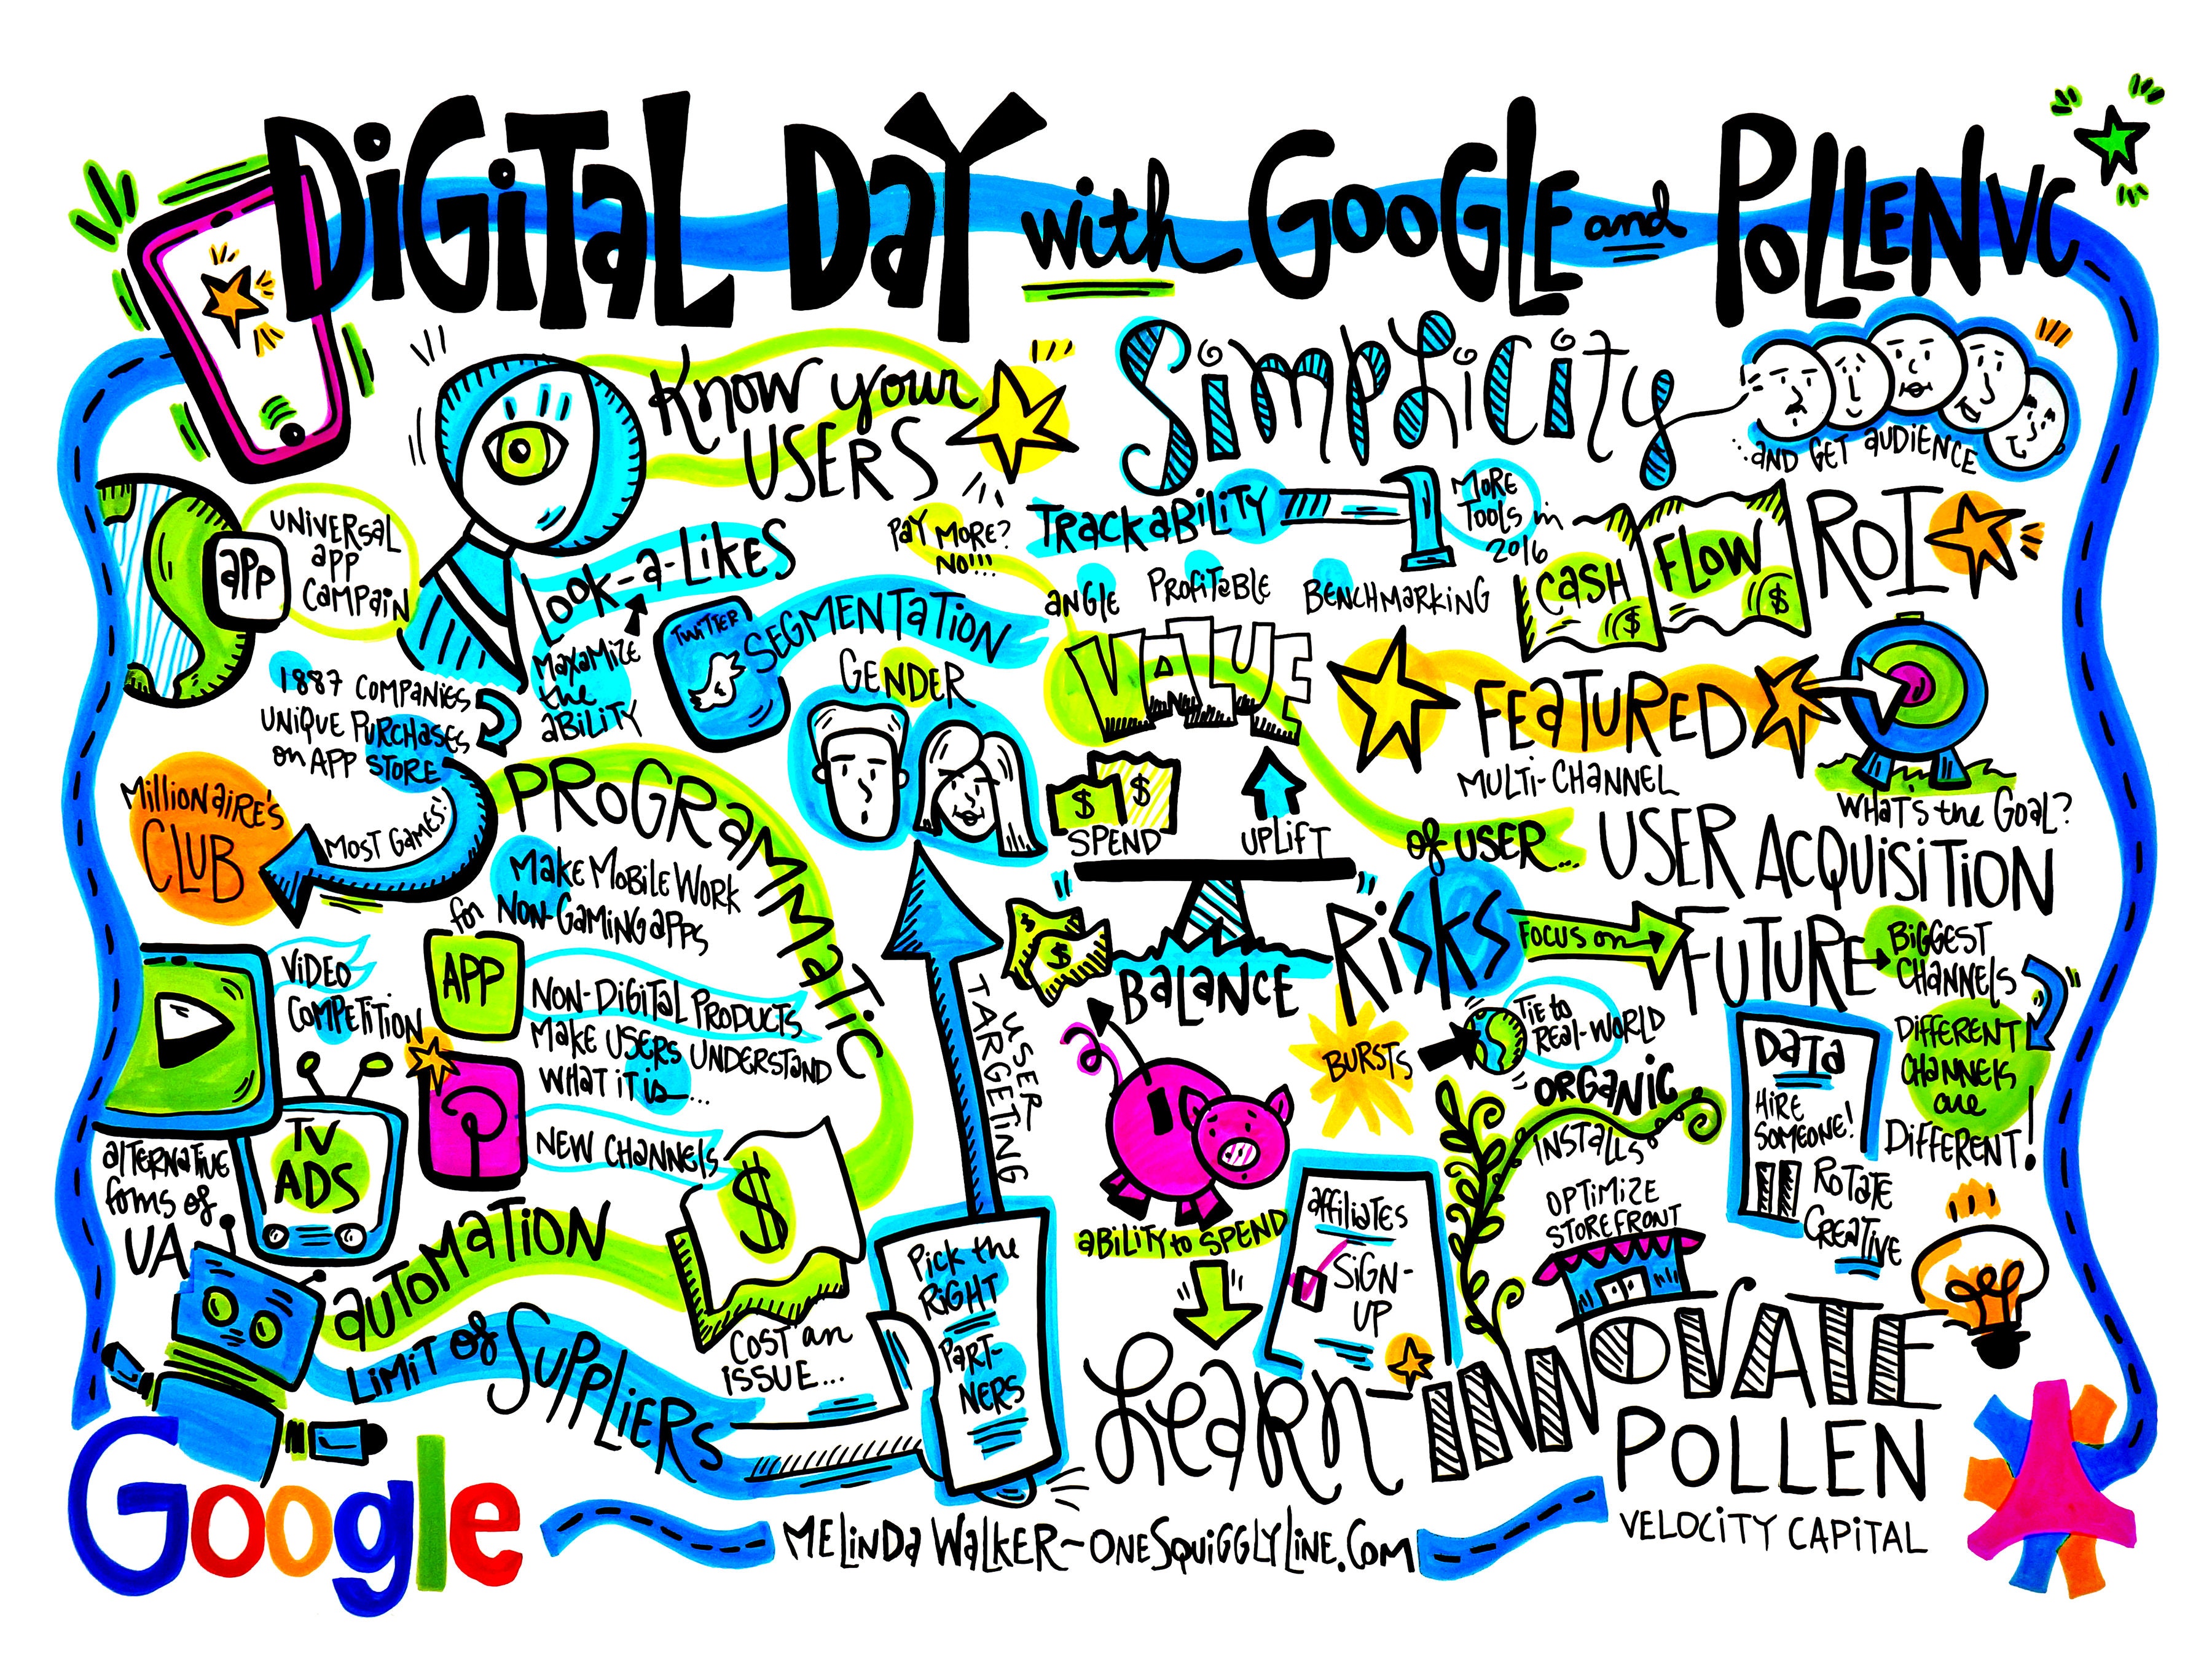 DiGiTaL Day with GooGLE and PoLLENVC
Know your
USERS
Simplicity
...and GET aUDiENCE
UNiVERSaL
aPP
CaMPaiN
aPP
LOOK-a-LiKES
MaXaMiZE
the
aBiLiTY
TWiTTER
SEGMENTaTiON
GENDER
Pay MORE?
NO!!!
TRaCKaBiLiTY
MORE
TOOLS in
2016
CaSH FLOW
ROI
aNGLE
PROFiTaBLE
BENCHMaRKiNG
VaLUE
SPEND
UPLiFT
of USER...
FEaTURED
MULTi-CHaNNEL
WHaT'S the GOaL?
USER ACQUiSiTiON
1887 COMPaNiES
UNiQUE PURCHaSES
on APP STORE
MOST GaMES!
MiLLiONaiRE'S
CLUB
PROGRaMMaTiC
MaKE MOBiLE WORK
for NON-GaMiNG aPPS
APP
NON-DiGiTaL PRODUCTS
MaKE USERS UNDERSTaND
WHaT iT is...
NEW CHaNNELS
ViDEO
COMPETiTiON
aLTERNaTiVE
foms of
UA
TV
ADS
aUTOMaTiON
LiMiT of SUPPLiERS
$
COST an
iSSUE...
USER
TaRGETiNG
Pick the
RiGHT
PaRT-
NERS
BaLaNCE
aBiLiTY to SPEND
RiSKS
FOCUS on
FUTURE
BiGGEST
CHaNNELS
DiFFERENT
CHaNNELS
are
DiFFERENT!
BURSTS
TiE to
REaL-WORLD
ORGaNiC
iNSTaLLS
OPTiMiZE
STOREFRONT
DaTa
HiRE
SOMEONE!
ROTaTE
CREaTiVE
affiLiaTES
SiGN-
UP
LEaRN-iNNOVaTE
POLLEN
VELOCiTY CAPiTaL
Google
MELiNDa WaLKER~ONESQUiGGLYLiNE.COM